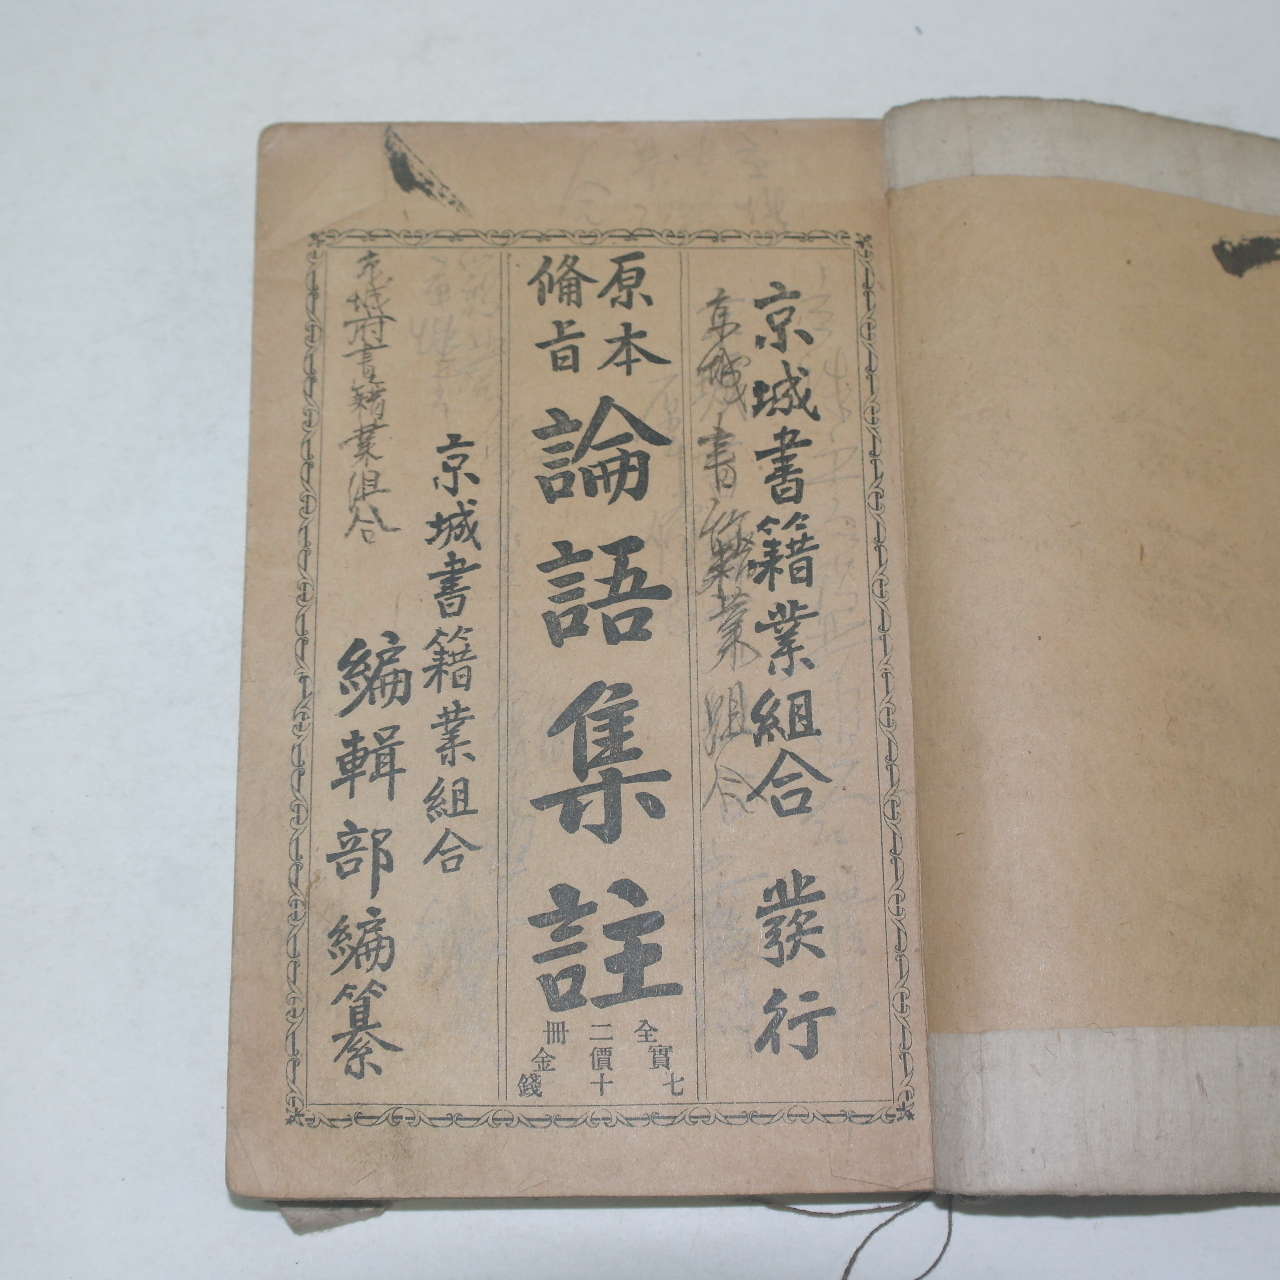 京城書籍業組合 發行
京城書籍業組合
原本
備旨
論語集註
全二冊
實價金
七十錢
京城書籍業組合
編輯部編纂
京城府書籍業組合